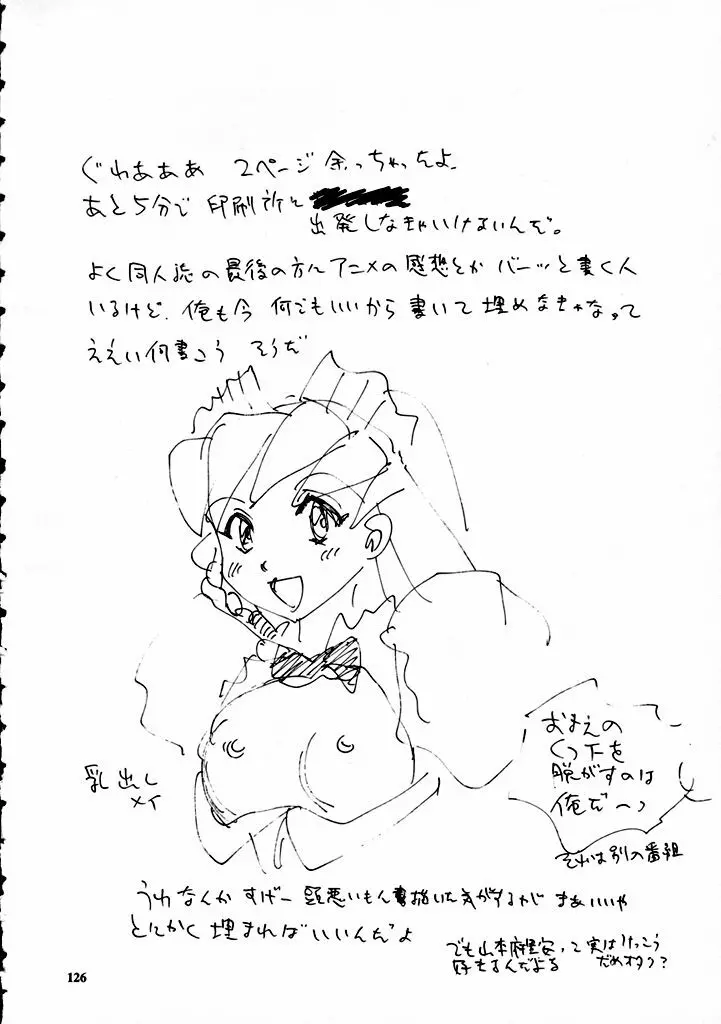 ぐわあああ 2ページ余っちゃったよ
あと5分で印刷所に
出発しなきゃいけないんだ。
よく同人誌の最後の方にアニメの感想とかバーッと書く人
いるけど、俺も今 何でもいいから書いて埋めなきゃなって
ええい何書こう そうだ
乳出し
メイ
おまえの
くつ下を
脱がすのは
俺だ〜っ
それは別の番組
うわなんかすげー頭悪いもん描いた気がするがまあいいや
とにかく埋まればいいんだよ
でも山本麻里安って実はけっこう
好きなんだよな
だめオタク?
126